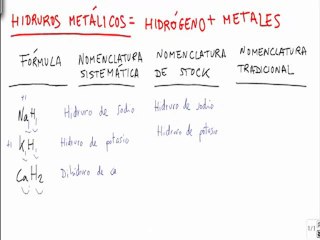 HIDRUROS METÁLICOS = HIDRÓGENO + METALES
FÓRMULA NOMENCLATURA SISTEMÁTICA NOMENCLATURA DE STOCK NOMENCLATURA TRADICIONAL
+1
NaH₁ Hidruro de sodio Hidruro de sodio
+1 KH₁ Hidruro de potasio Hidruro de potasio
CaH₂ Dihidruro de ca
1/1